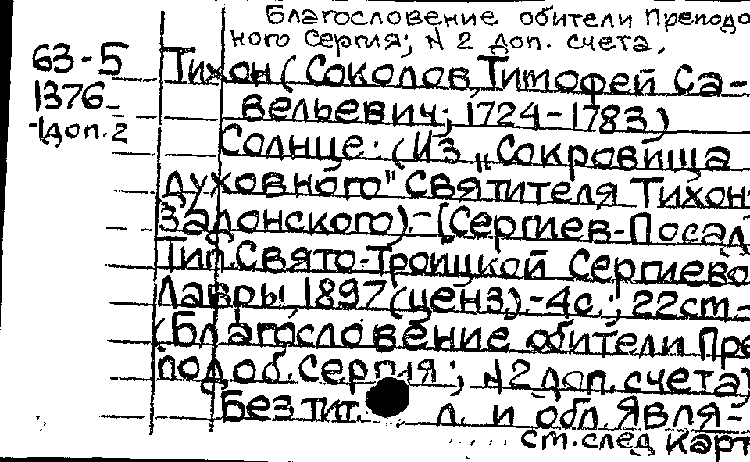 Благословение обители Преподо
ного Сергия; N 2 доп. счета.
63-5
Тихон (Соколов Тимофей Са-
1376
вельевич; 1724-1783)
-1доп.2
Солнце. (Из „Сокровища
духовного" Святителя Тихон
Задонского).-[Сергиев-Посад
Тип. Свято-Троицкой Сергиево
Лавры, 1897 (ценз.).-4с.; 22см.-
(Благословение обители Пре
подоб. Сергия; N2 доп. счета)
Без тит. л. и обл. Явля-
см. след карт